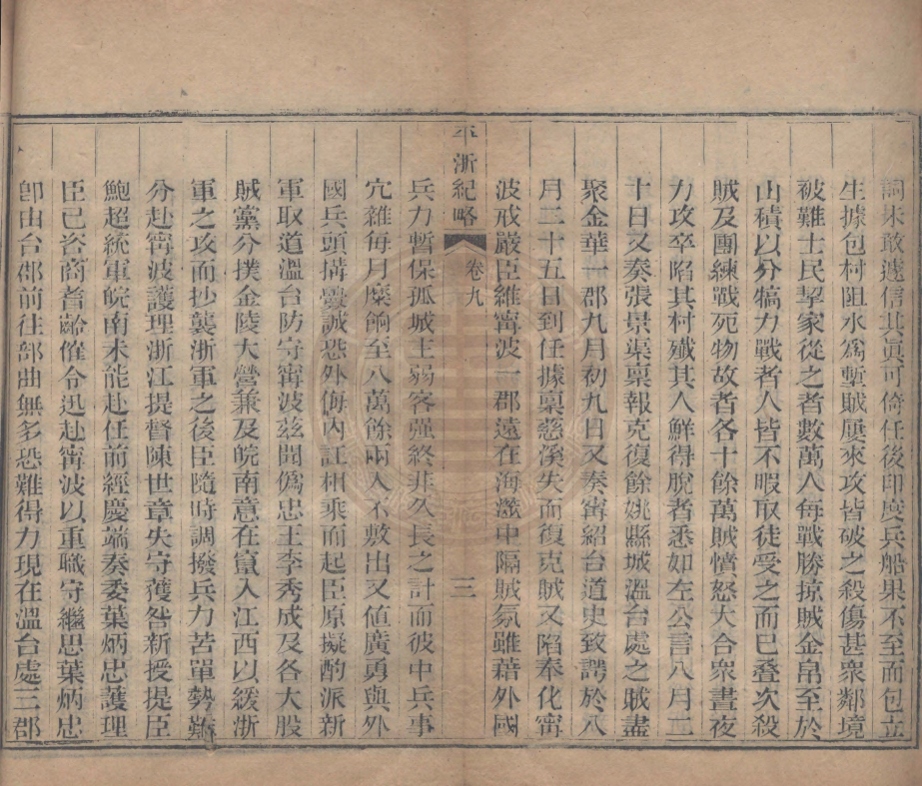 詞未敢遽信其眞可倚任後印度兵船果不至而包立
生據包村阻水爲塹賊屢來攻皆破之殺傷甚衆鄰境
被難士民挈家從之者數萬人每戰勝掠賊金帛至於
山積以分犒力戰者人皆不暇取徒受之而已叠次殺
賊及團練戰死物故者各十餘萬賊憤怒大合衆晝夜
力攻卒陷其村殲其人鮮得脫者悉如左公言八月二
十日又奏張景渠稟報克復餘姚縣城溫台處之賊盡
聚金華一郡九月初九日又奏寧紹台道史致諤於八
月二十五日到任據稟慈溪失而復克賊又陷奉化甯
波戒嚴臣維甯波一郡遠在海澨中隔賊氛雖藉外國
平浙紀略 卷九 三
兵力暫保孤城主弱客強終非久長之計而彼中兵事
冗雜每月糜餉至八萬餘兩入不敷出又値廣勇與外
國兵頭搆釁誠恐外侮內訌相乘而起臣原擬酌派新
軍取道溫台防守甯波茲聞僞忠王李秀成及各大股
賊黨分撲金陵大營兼及皖南意在竄入江西以緩浙
軍之攻而抄襲浙軍之後臣隨時調撥兵力苦單勢難
分赴甯波護理浙江提督陳世章失守獲咎新授提臣
鮑超統軍皖南未能赴任前經慶端奏委葉炳忠護理
臣已咨商耆齡催令迅赴甯波以重職守繼思葉炳忠
卽由台郡前往部曲無多恐難得力現在溫台處三郡